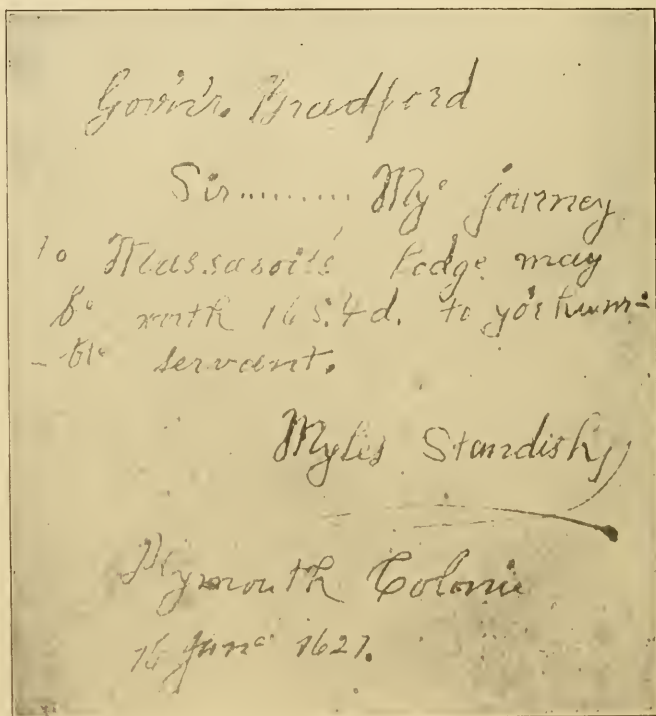 Gov'n'r. Bradford
Sir......... My journey
to Massasoit's Lodge may
be worth 16 s. 4 d. to yor hum=
- ble servant.
Myles Standish
Plymouth Colonie
16 June 1627.